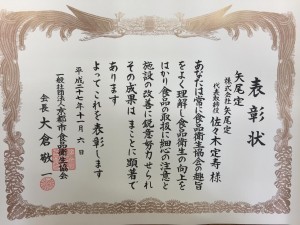 表彰状
矢尾定
株式会社矢尾定
代表取締役 佐々木定寿 様
あなたは常に食品衛生協会の趣旨
をよく理解し食品衛生の向上を
はかり食品の取扱に細心の注意と
施設の改善に鋭意努力せられ
その成果はまことに顕著で
あります
よってこれを表彰します
平成二十七年十一月六日
一般社団法人京都市食品衛生協会
会長 大倉敬一